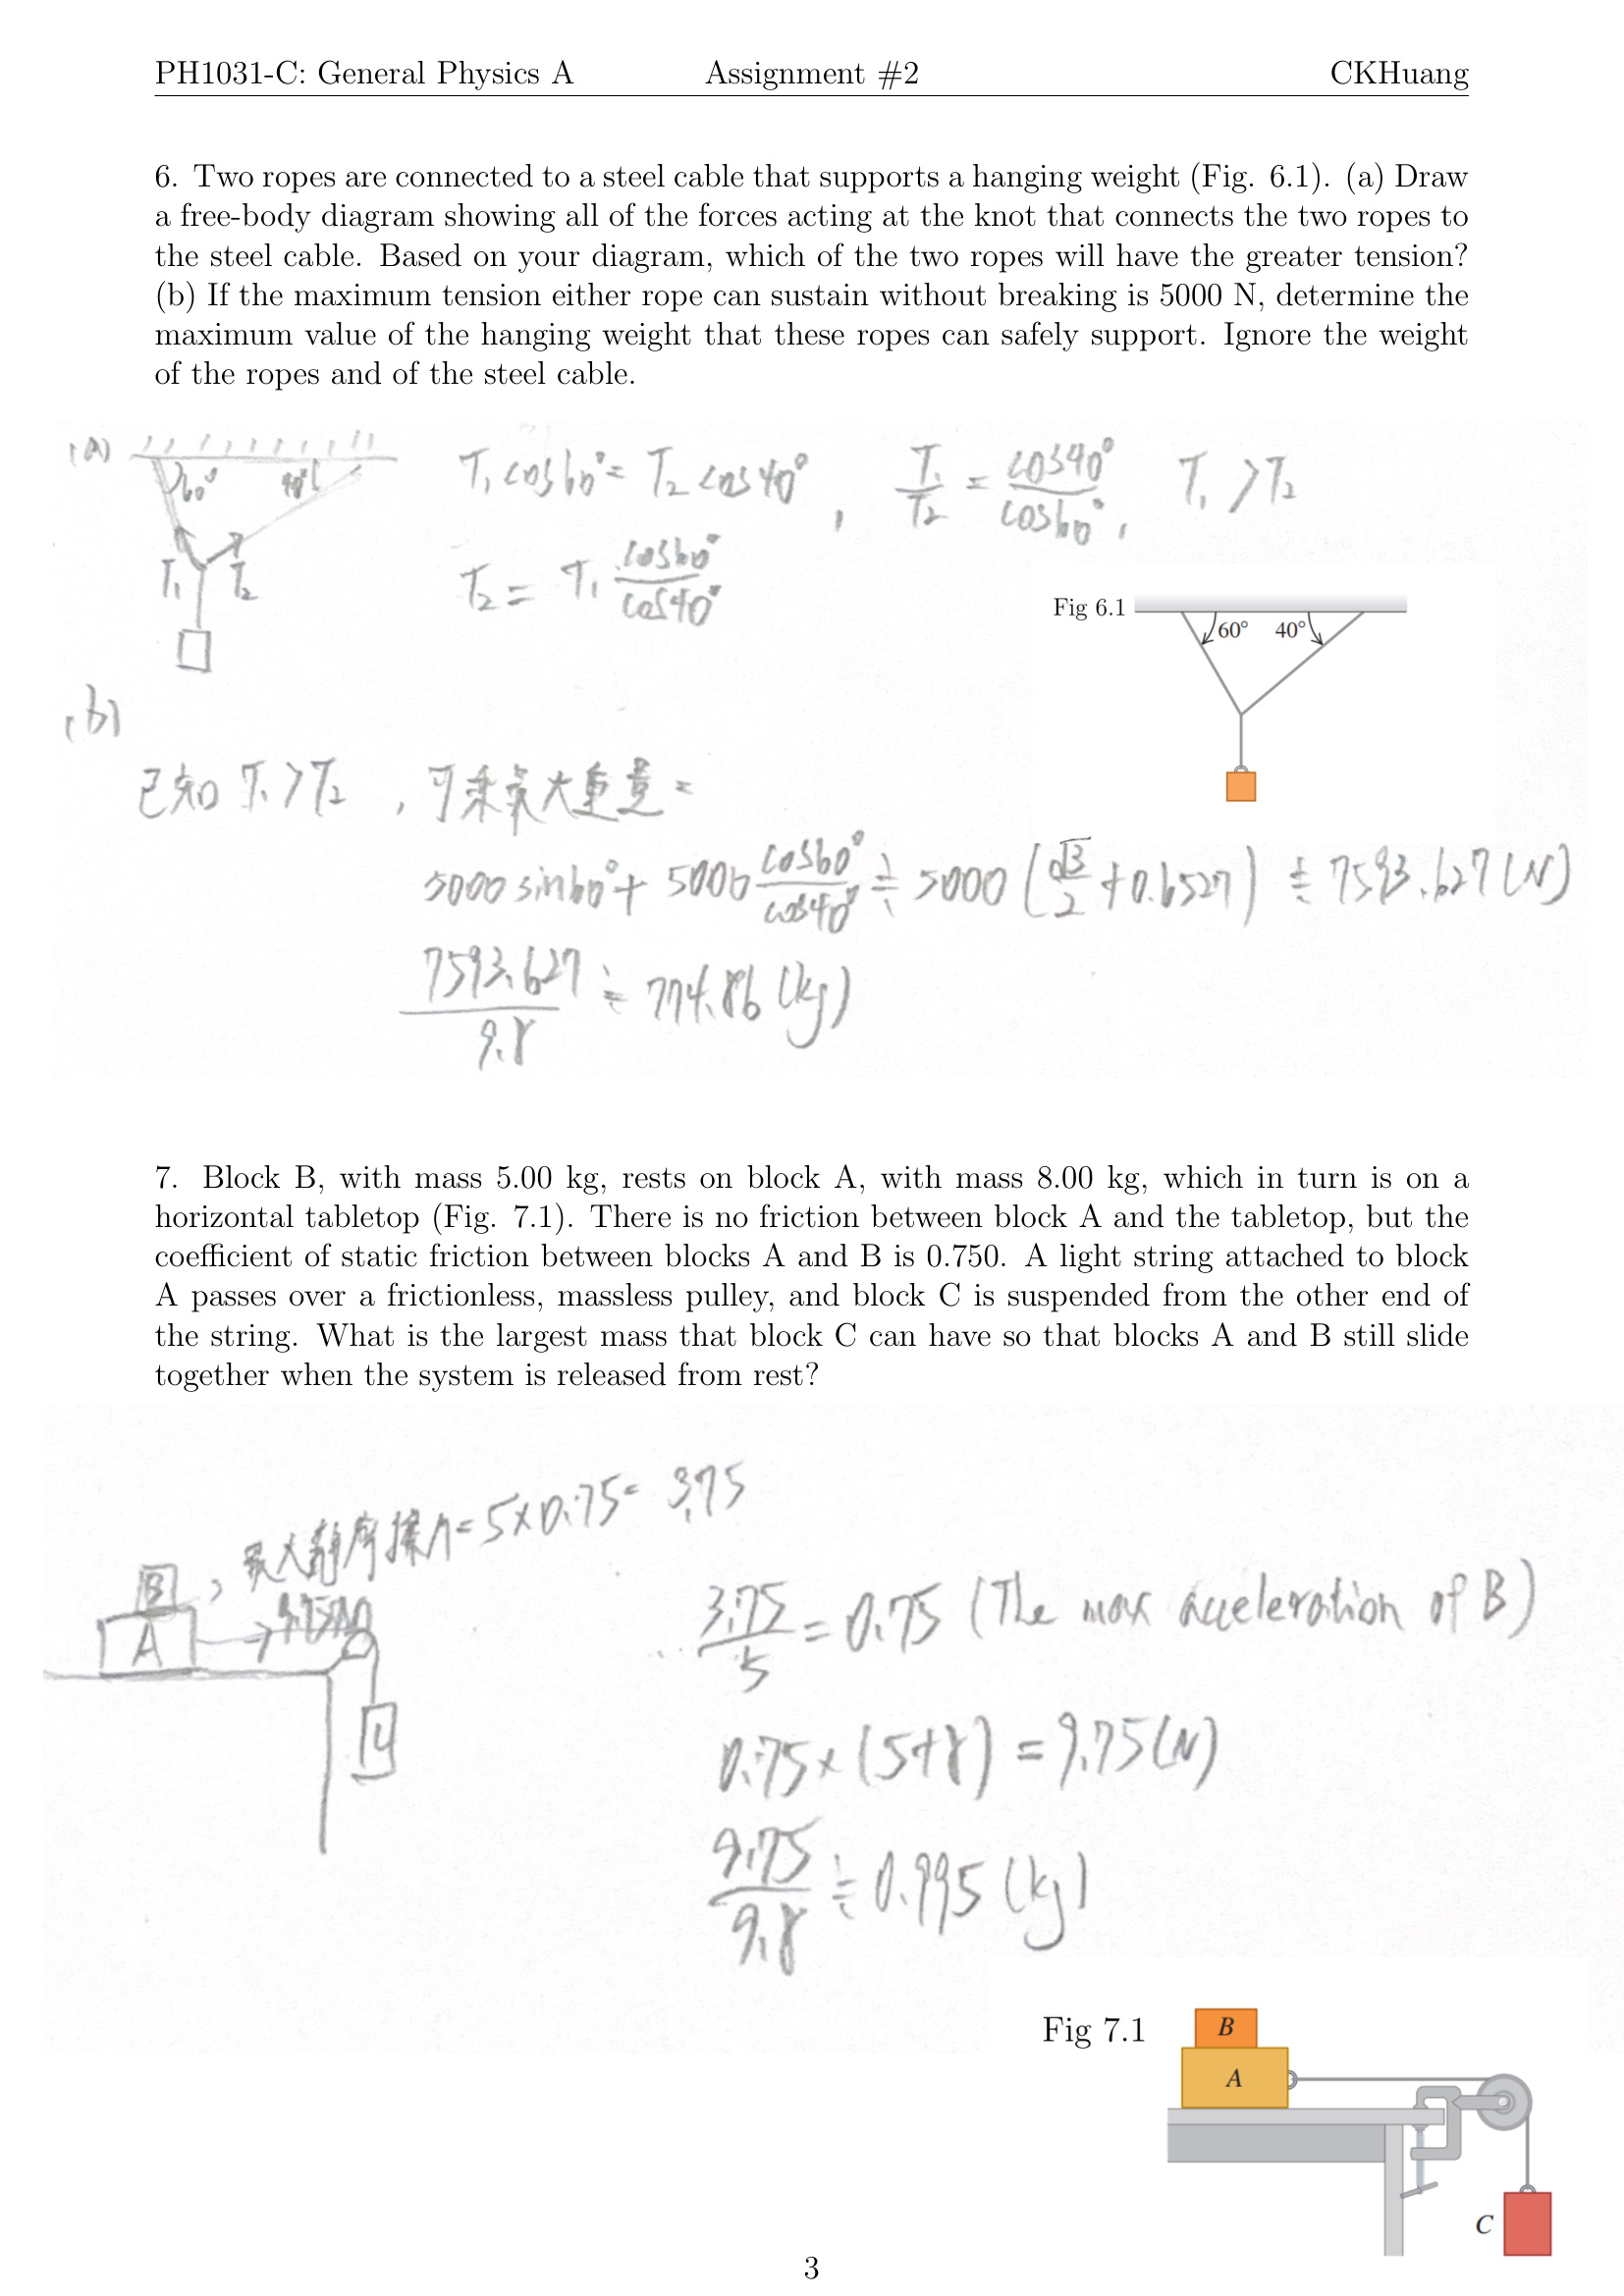 PH1031-C: General Physics A Assignment #2 CKHuang
6. Two ropes are connected to a steel cable that supports a hanging weight (Fig. 6.1). (a) Draw
a free-body diagram showing all of the forces acting at the knot that connects the two ropes to
the steel cable. Based on your diagram, which of the two ropes will have the greater tension?
(b) If the maximum tension either rope can sustain without breaking is 5000 N, determine the
maximum value of the hanging weight that these ropes can safely support. Ignore the weight
of the ropes and of the steel cable.
(a)
60° 40°
T₁ T₂
T₁ cos60° = T₂ cos40° , T₁/T₂ = cos40°/cos60° , T₁ > T₂
T₂ = T₁ cos60°/cos40°
Fig 6.1
60° 40°
(b)
已知 T₁ > T₂ , 可乘最大重量 =
5000 sin60° + 5000 cos60°/cos40° ≒ 5000 (√3/2 + 0.6527) ≒ 7593.627 (N)
7593.627/9.8 ≒ 774.86 (kg)
7. Block B, with mass 5.00 kg, rests on block A, with mass 8.00 kg, which in turn is on a
horizontal tabletop (Fig. 7.1). There is no friction between block A and the tabletop, but the
coefficient of static friction between blocks A and B is 0.750. A light string attached to block
A passes over a frictionless, massless pulley, and block C is suspended from the other end of
the string. What is the largest mass that block C can have so that blocks A and B still slide
together when the system is released from rest?
B , 最大靜摩擦力 = 5×0.75 = 3.75
A
3.75/5 = 0.75 (The max acceleration of B)
0.75 × (5+8) = 9.75 (N)
9.75/9.8 ≒ 0.995 (kg)
Fig 7.1
B
A
C
3